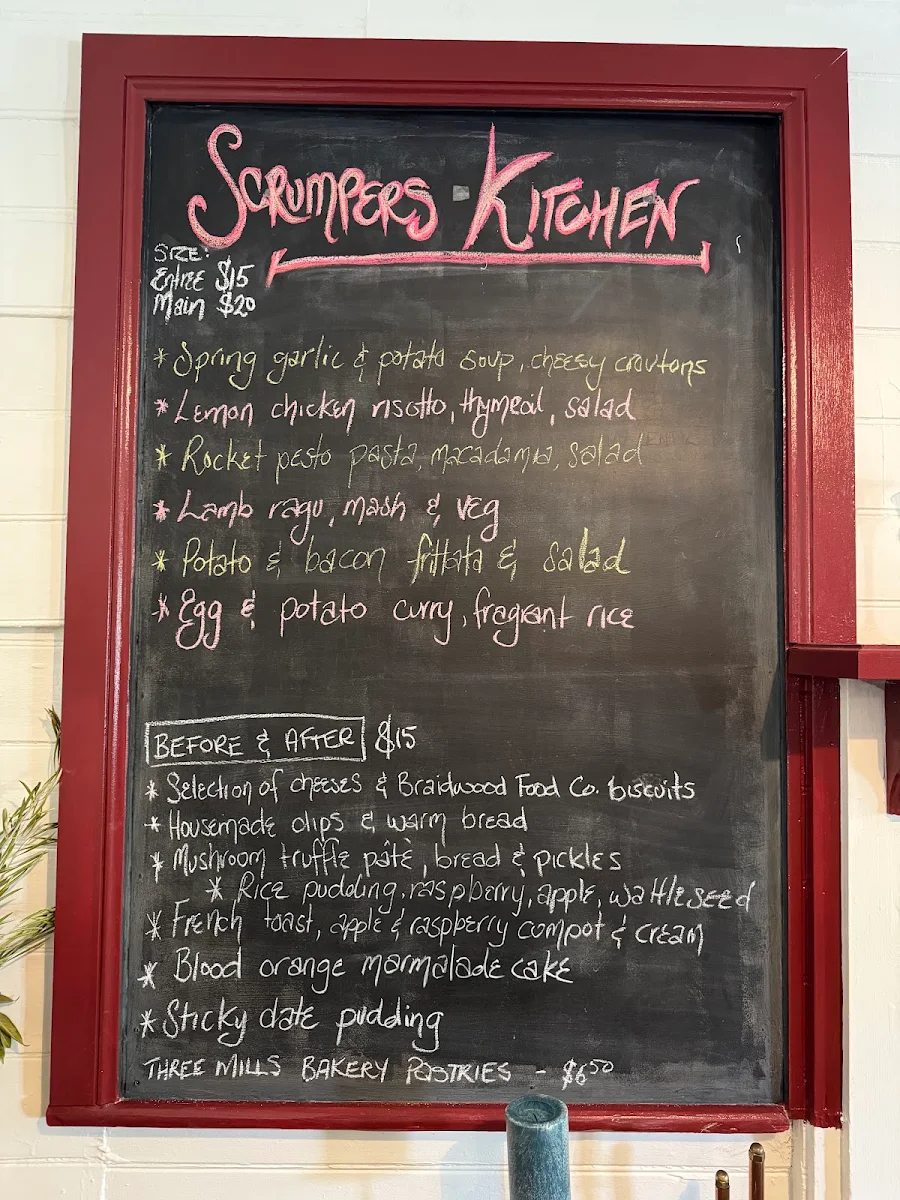 SCRUMPERS KITCHEN
SIZE:
Entree $15
Main $20
* Spring garlic & potato soup, cheesy croutons
* Lemon chicken risotto, thymeoil, salad
* Rocket pesto pasta, macadamia, salad
* Lamb ragu, mash & veg
* Potato & bacon frittata & salad
* Egg & potato curry, fragrant rice
BEFORE & AFTER $15
* Selection of cheeses & Braidwood Food Co. biscuits
* Housemade dips & warm bread
* Mushroom truffle pâtè, bread & pickles
* Rice pudding, raspberry, apple, wattleseed
* French toast, apple & raspberry compot & cream
* Blood orange marmalade cake
* Sticky date pudding
THREE MILLS BAKERY PASTRIES - $650